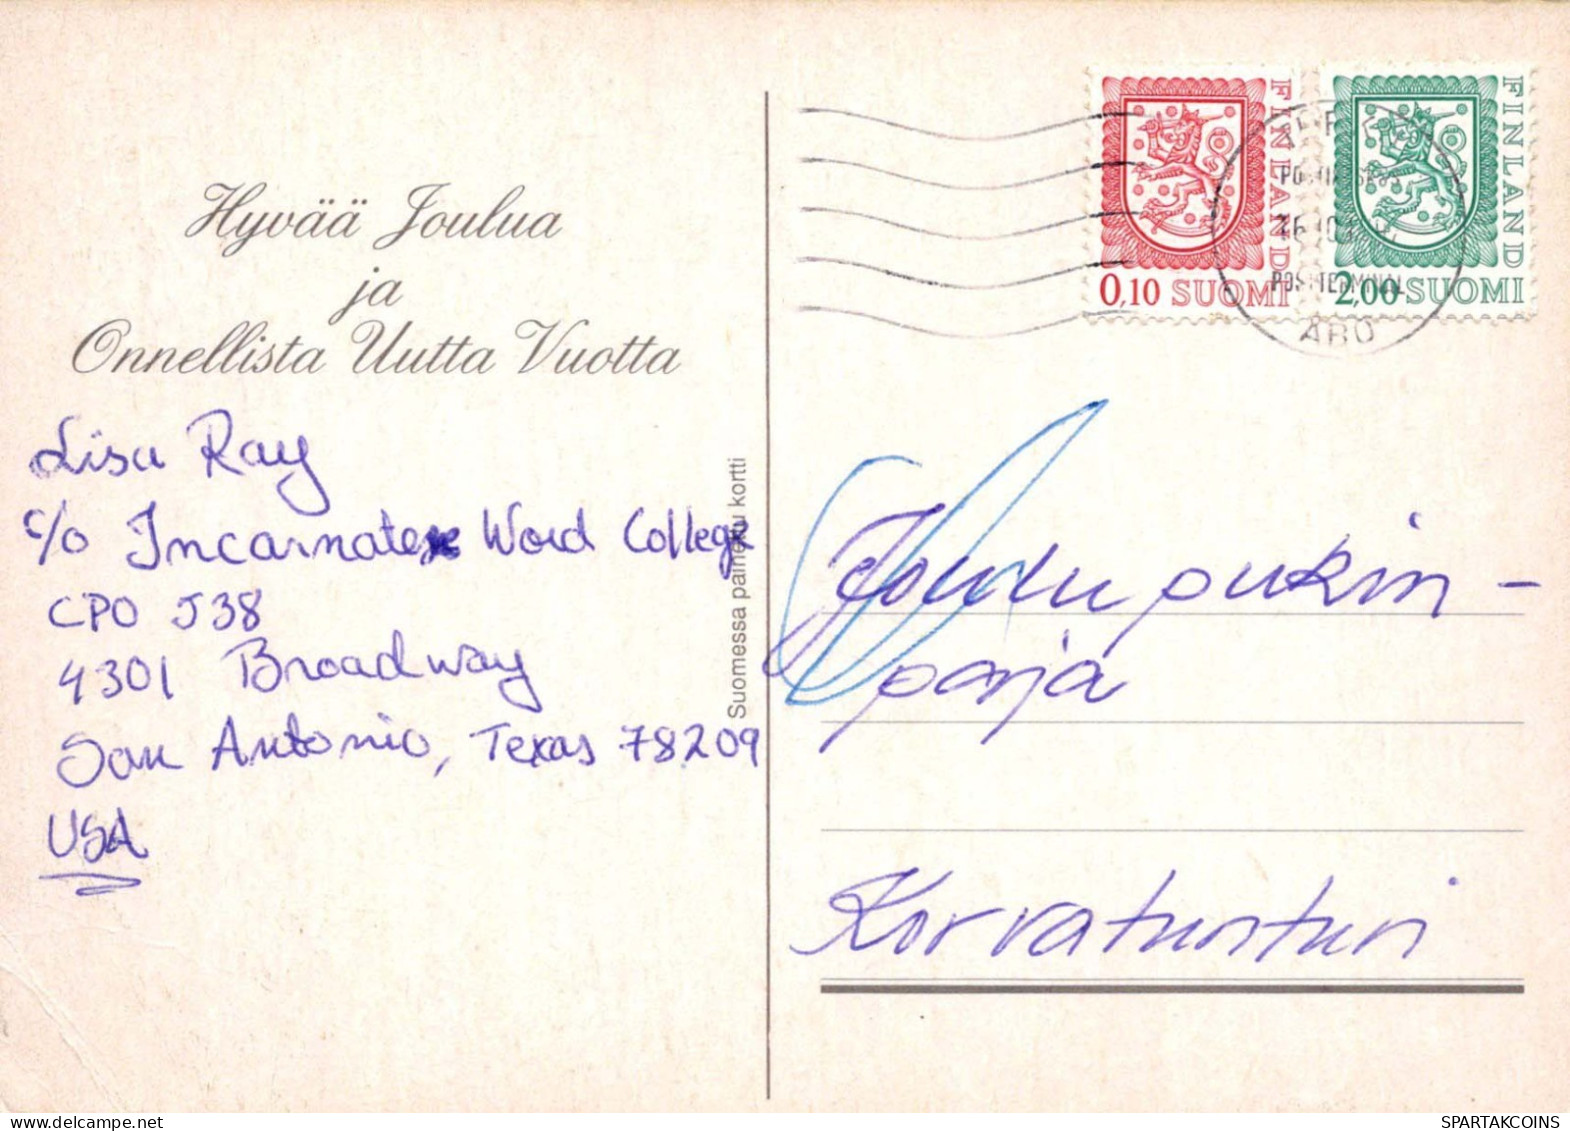 Hyvää Joulua
ja
Onnellista Uutta Vuotta
Lisa Ray
c/o Incarnate Word College
CPO J38
4301 Broadway
San Antonio, Texas 78209
USA
Suomessa painettu kortti
0,10 SUOMI
FINLAND
2,00 SUOMI
FINLAND
POSTITERMINAL
ABO
Joulupukin-
paja
Korvatunturi
SPARTAKCOINS
delcampe.net